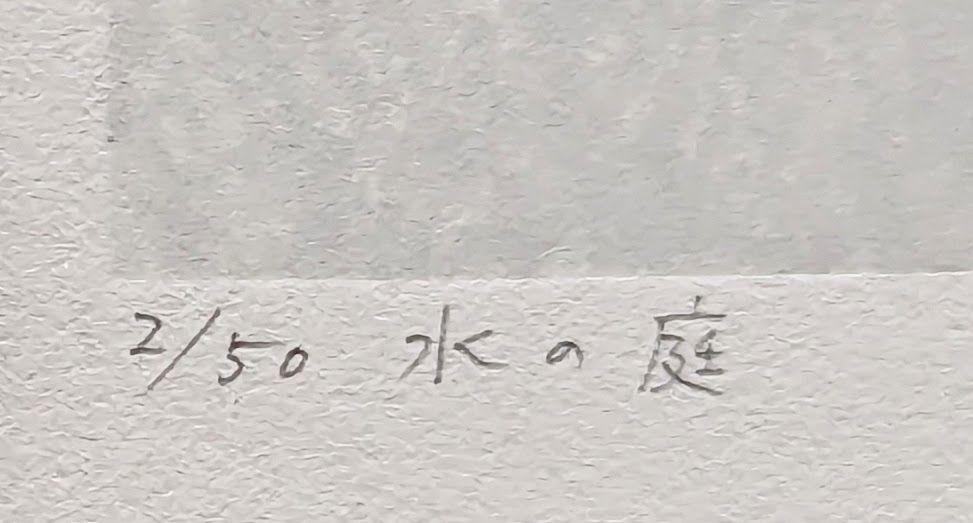 2/50 水の庭